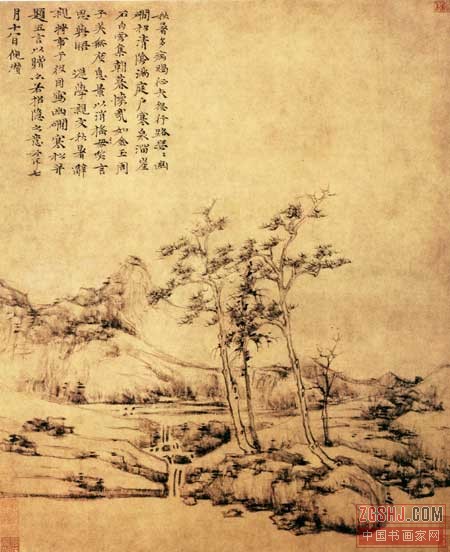 秋暑多病暍征夫怨行路瑟瑟幽
澗松清陰滿庭戶寒泉溜崖
石白雲集朝暮懷哉如金玉周
子美無度息景以消搖笑言
思與晤 遜學親友秋暑辭
親將事于役因寫幽澗寒松并
題五言以贈亦若招隱之意云耳七
月十八日倪瓚
ZGSHJ.COM
中国书画家网